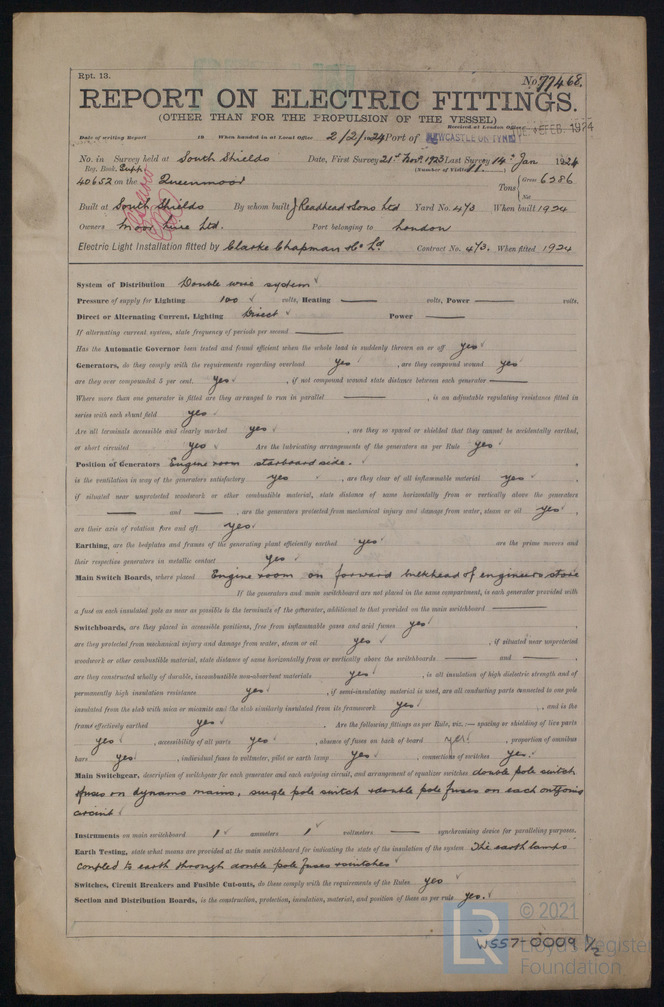 Rpt. 13.
No. 77468.
REPORT ON ELECTRIC FITTINGS.
(OTHER THAN FOR THE PROPULSION OF THE VESSEL)
Received at London Office FEB. 1924
Date of writing Report 19 When handed in at Local Office 2/2/1924 Port of NEWCASTLE ON TYNE
No. in Survey held at South Shields Date, First Survey 21st Novr 1923 Last Survey 14th Jan 1924
Reg. Book. Supp. (Number of Visits
40652 on the Queenmoor Tons { Gross 6386
Net
Built at South Shields By whom built J Readhead & Sons Ltd Yard No. 473 When built 1924
Owners Moor Line Ltd. Port belonging to London
Electric Light Installation fitted by Clarke Chapman & Co Ld. Contract No. 473. When fitted 1924
System of Distribution Double wire system
Pressure of supply for Lighting 100 volts, Heating — volts, Power — volts.
Direct or Alternating Current, Lighting Direct Power —
If alternating current system, state frequency of periods per second —
Has the Automatic Governor been tested and found efficient when the whole load is suddenly thrown on or off yes
Generators, do they comply with the requirements regarding overload yes , are they compound wound yes
are they over compounded 5 per cent. yes , if not compound wound state distance between each generator —
Where more than one generator is fitted are they arranged to run in parallel — , is an adjustable regulating resistance fitted in
series with each shunt field yes
Are all terminals accessible and clearly marked yes , are they so spaced or shielded that they cannot be accidentally earthed,
or short circuited yes Are the lubricating arrangements of the generators as per Rule yes
Position of Generators Engine room starboard side.
is the ventilation in way of the generators satisfactory yes , are they clear of all inflammable material yes
if situated near unprotected woodwork or other combustible material, state distance of same horizontally from or vertically above the generators
— and — , are the generators protected from mechanical injury and damage from water, steam or oil yes ,
are their axis of rotation fore and aft yes
Earthing, are the bedplates and frames of the generating plant efficiently earthed yes are the prime movers and
their respective generators in metallic contact yes
Main Switch Boards, where placed Engine room on forward bulkhead of engineers store
If the generators and main switchboard are not placed in the same compartment, is each generator provided with
a fuse on each insulated pole as near as possible to the terminals of the generator, additional to that provided on the main switchboard —
Switchboards, are they placed in accessible positions, free from inflammable gases and acid fumes yes ,
are they protected from mechanical injury and damage from water, steam or oil yes , if situated near unprotected
woodwork or other combustible material, state distance of same horizontally from or vertically above the switchboards — and — ,
are they constructed wholly of durable, incombustible non-absorbent materials yes , is all insulation of high dielectric strength and of
permanently high insulation resistance yes , if semi-insulating material is used, are all conducting parts connected to one pole
insulated from the slab with mica or micanite and the slab similarly insulated from its framework yes , and is the
frame effectively earthed yes . Are the following fittings as per Rule, viz.:— spacing or shielding of live parts
yes , accessibility of all parts yes , absence of fuses on back of board yes , proportion of omnibus
bars yes , individual fuses to voltmeter, pilot or earth lamp yes , connections of switches yes.
Main Switchgear, description of switchgear for each generator and each outgoing circuit, and arrangement of equalizer switches double pole switch
& fuses on dynamo mains, single pole switch & double pole fuses on each outgoing
circuit
Instruments on main switchboard 1 ammeters 1 voltmeters — synchronising device for paralleling purposes.
Earth Testing, state what means are provided at the main switchboard for indicating the state of the insulation of the system The earth lamps
coupled to earth through double pole fuses & switches
Switches, Circuit Breakers and Fusible Cut-outs, do these comply with the requirements of the Rules yes
Section and Distribution Boards, is the construction, protection, insulation, material, and position of these as per rule yes.
© 2021
LR
Lloyd's Register
Foundation
W557-0009 1/2